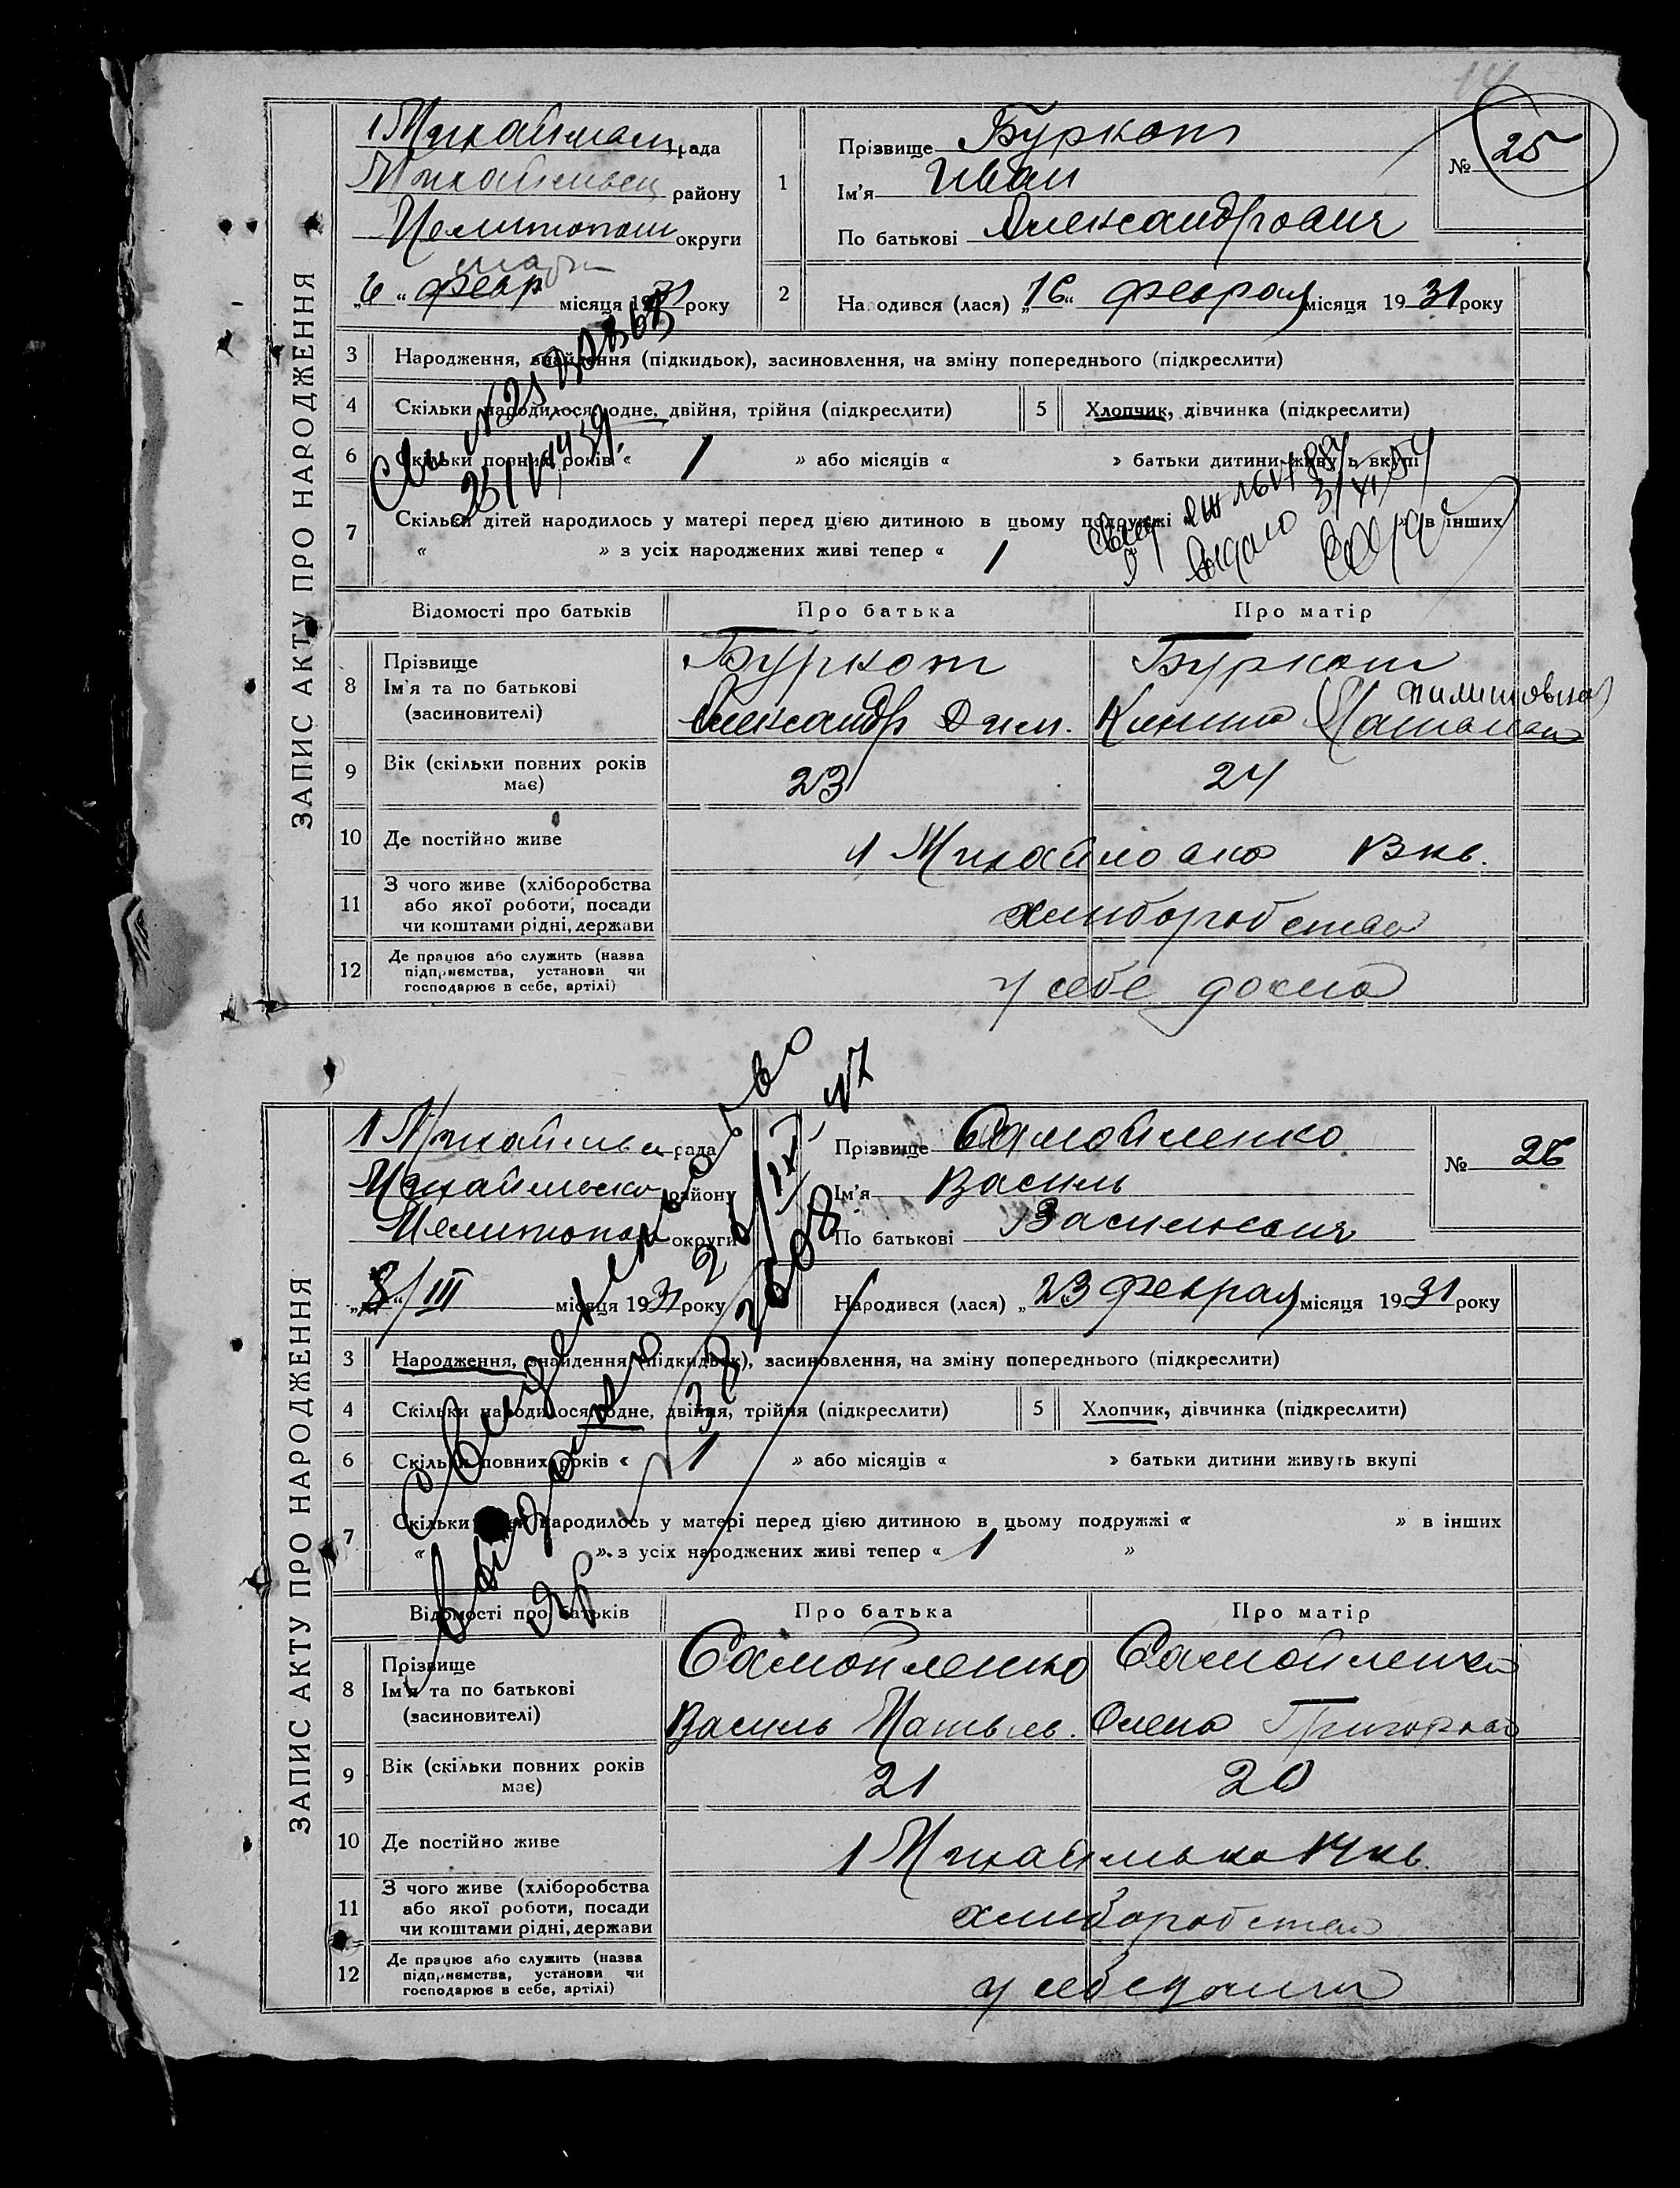 14
ЗАПИС АКТУ ПРО НАРОДЖЕННЯ
1 Михайловск рада
Михайловск району
Мелитопол округи
марта
„6“ февр місяця 1931 року
1 Прізвище Буркот
Ім'я Иван
По батькові Александрович
№ 25
2 На одився (лася) „16“ Февраля місяця 1931 року
3 Народження, знайдення (підкидьок), засиновлення, на зміну попереднього (підкреслити)
4 Скільки народилося: одне, двійня, трійня (підкреслити)
5 Хлопчик, дівчинка (підкреслити)
6 Скільки повних років « 1 » або місяців « » батьки дитини живуть вкупі
7 Скільки дітей народилось у матері перед цією дитиною в цьому подружжі » в інших
« » з усіх народжених живі тепер « 1
Відомості про батьків Про батька Про матір
8 Прізвище Буркот Буркот
Ім'я та по батькові
(засиновителі) Александр Дим.
9 Вік (скільки повних років має) 23 24
10 Де постійно живе 1 Михайловка 13 кв.
11 З чого живе (хліборобства або якої роботи, посади чи коштами рідні, держави хлиборобства
12 Де працює або служить (назва підприємства, установи чи господарює в себе, артілі) у себе дома
ЗАПИС АКТУ ПРО НАРОДЖЕННЯ
1 Михайловск рада
Михайловско району
Мелитопол округи
„8“/III місяця 1931 року
Прізвище Самойленко
Ім'я Василь
По батькові Васильович
№ 26
Народився (лася) „23 Февраля місяця 1931 року
3 Народження, знайдення (підкидьок), засиновлення, на зміну попереднього (підкреслити)
4 Скільки народилося: одне, двійня, трійня (підкреслити)
5 Хлопчик, дівчинка (підкреслити)
6 Скільки повних років « 1 » або місяців « » батьки дитини живуть вкупі
7 Скільки дітей народилось у матері перед цією дитиною в цьому подружжі « » в інших
« » з усіх народжених живі тепер « 1 »
Відомості про батьків Про батька Про матір
8 Прізвище Самойленко Самойленко
Ім'я та по батькові
(засиновителі) Василь Олена Григорьев
9 Вік (скільки повних років має) 21 20
10 Де постійно живе 1 Михайловка 14 кв.
11 З чого живе (хліборобства або якої роботи, посади чи коштами рідні, держави хлиборобства
12 Де працює або служить (назва підприємства, установи чи господарює в себе, артілі) у себе дома